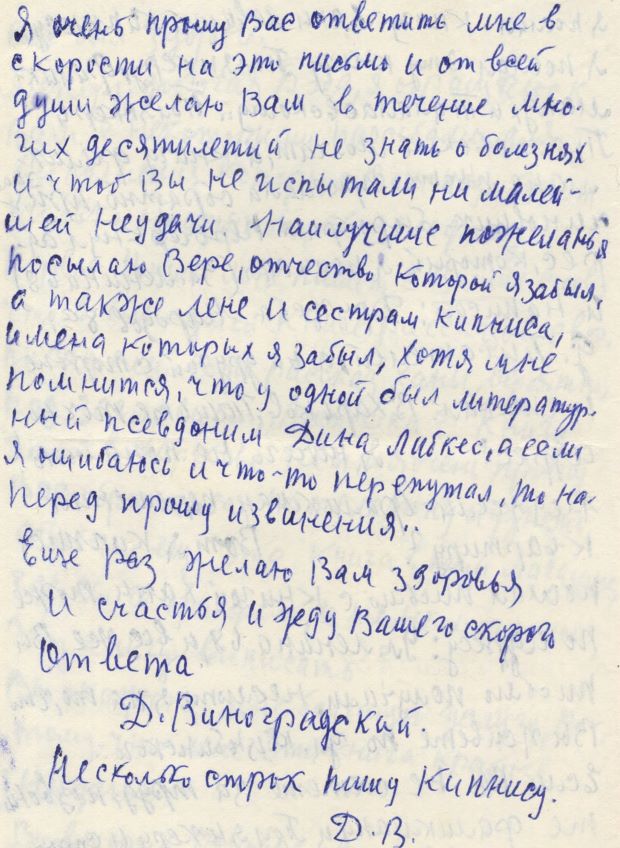 Я очень прошу Вас ответить мне в
скорости на это письмо и от всей
души желаю Вам в течение мно-
гих десятилетий не знать о болезнях
и чтоб Вы не испытали ни малей-
шей неудачи Наилучшие пожеланья
посылаю Вере, отчество которой я забыл,
а также Лене и сестрам Кипниса,
имена которых я забыл, хотя мне
помнится, что у одной был литератур-
ный псевдоним Дина Либкес, а если
я ошибаюсь и что-то перепутал, то на-
перед прошу извинения..
Еще раз желаю Вам здоровья
и счастья и жду Вашего скорого
ответа
Д. Виноградский.
Несколько строк пишу Кипнису.
Д. В.